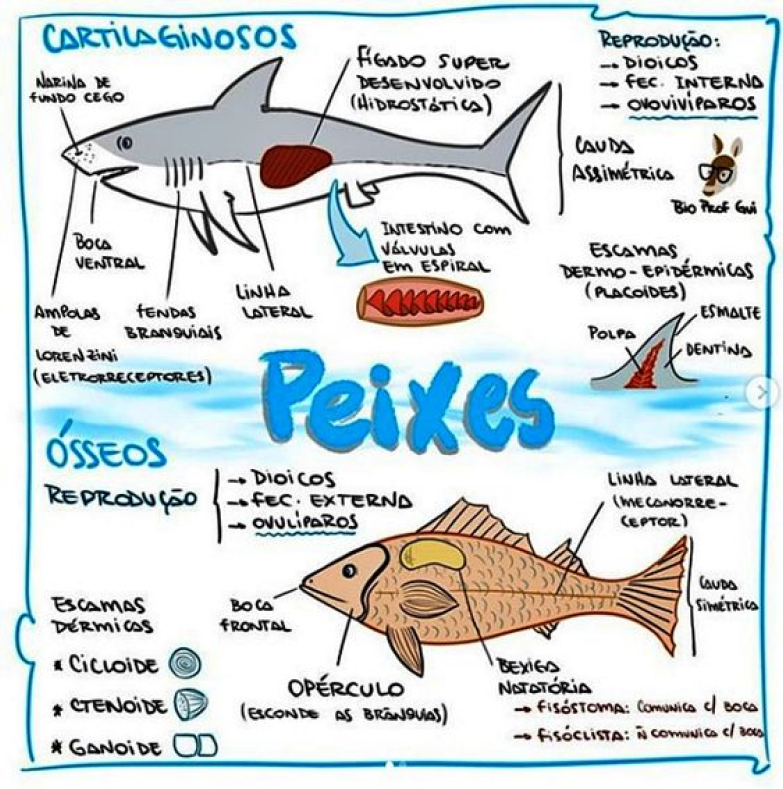 CARTILAGINOSOS
NARINA DE
FUNDO CEGO
FÍGADO SUPER
DESENVOLVIDO
(HIDROSTÁTICA)
REPRODUÇÃO:
→ DIOICOS
→ FEC. INTERNA
→ OVOVIVÍPAROS
CAUDA
ASSIMÉTRICA
Bio Prof Gui
BOCA
VENTRAL
AMPOLAS
DE
LORENZINI
(ELETRORRECEPTORES)
FENDAS
BRANQUIAIS
LINHA
LATERAL
INTESTINO COM
VÁLVULAS
EM ESPIRAL
ESCAMAS
DERMO-EPIDÉRMICAS
(PLACOIDES)
ESMALTE
POLPA
DENTINA
Peixes
ÓSSEOS
REPRODUÇÃO
→ DIOICOS
→ FEC. EXTERNA
→ OVULÍPAROS
LINHA LATERAL
(MECANORRE-
CEPTOR)
CAUDA
SIMÉTRICA
BOCA
FRONTAL
ESCAMAS
DÉRMICAS
* CICLOIDE
* CTENOIDE
* GANOIDE
OPÉRCULO
(ESCONDE AS BRÂNQUIAS)
BEXIGA
NATATÓRIA
→ FISÓSTOMA: COMUNICA C/ BOCA
→ FISÓCLISTA: Ñ COMUNICA C/ BOCA